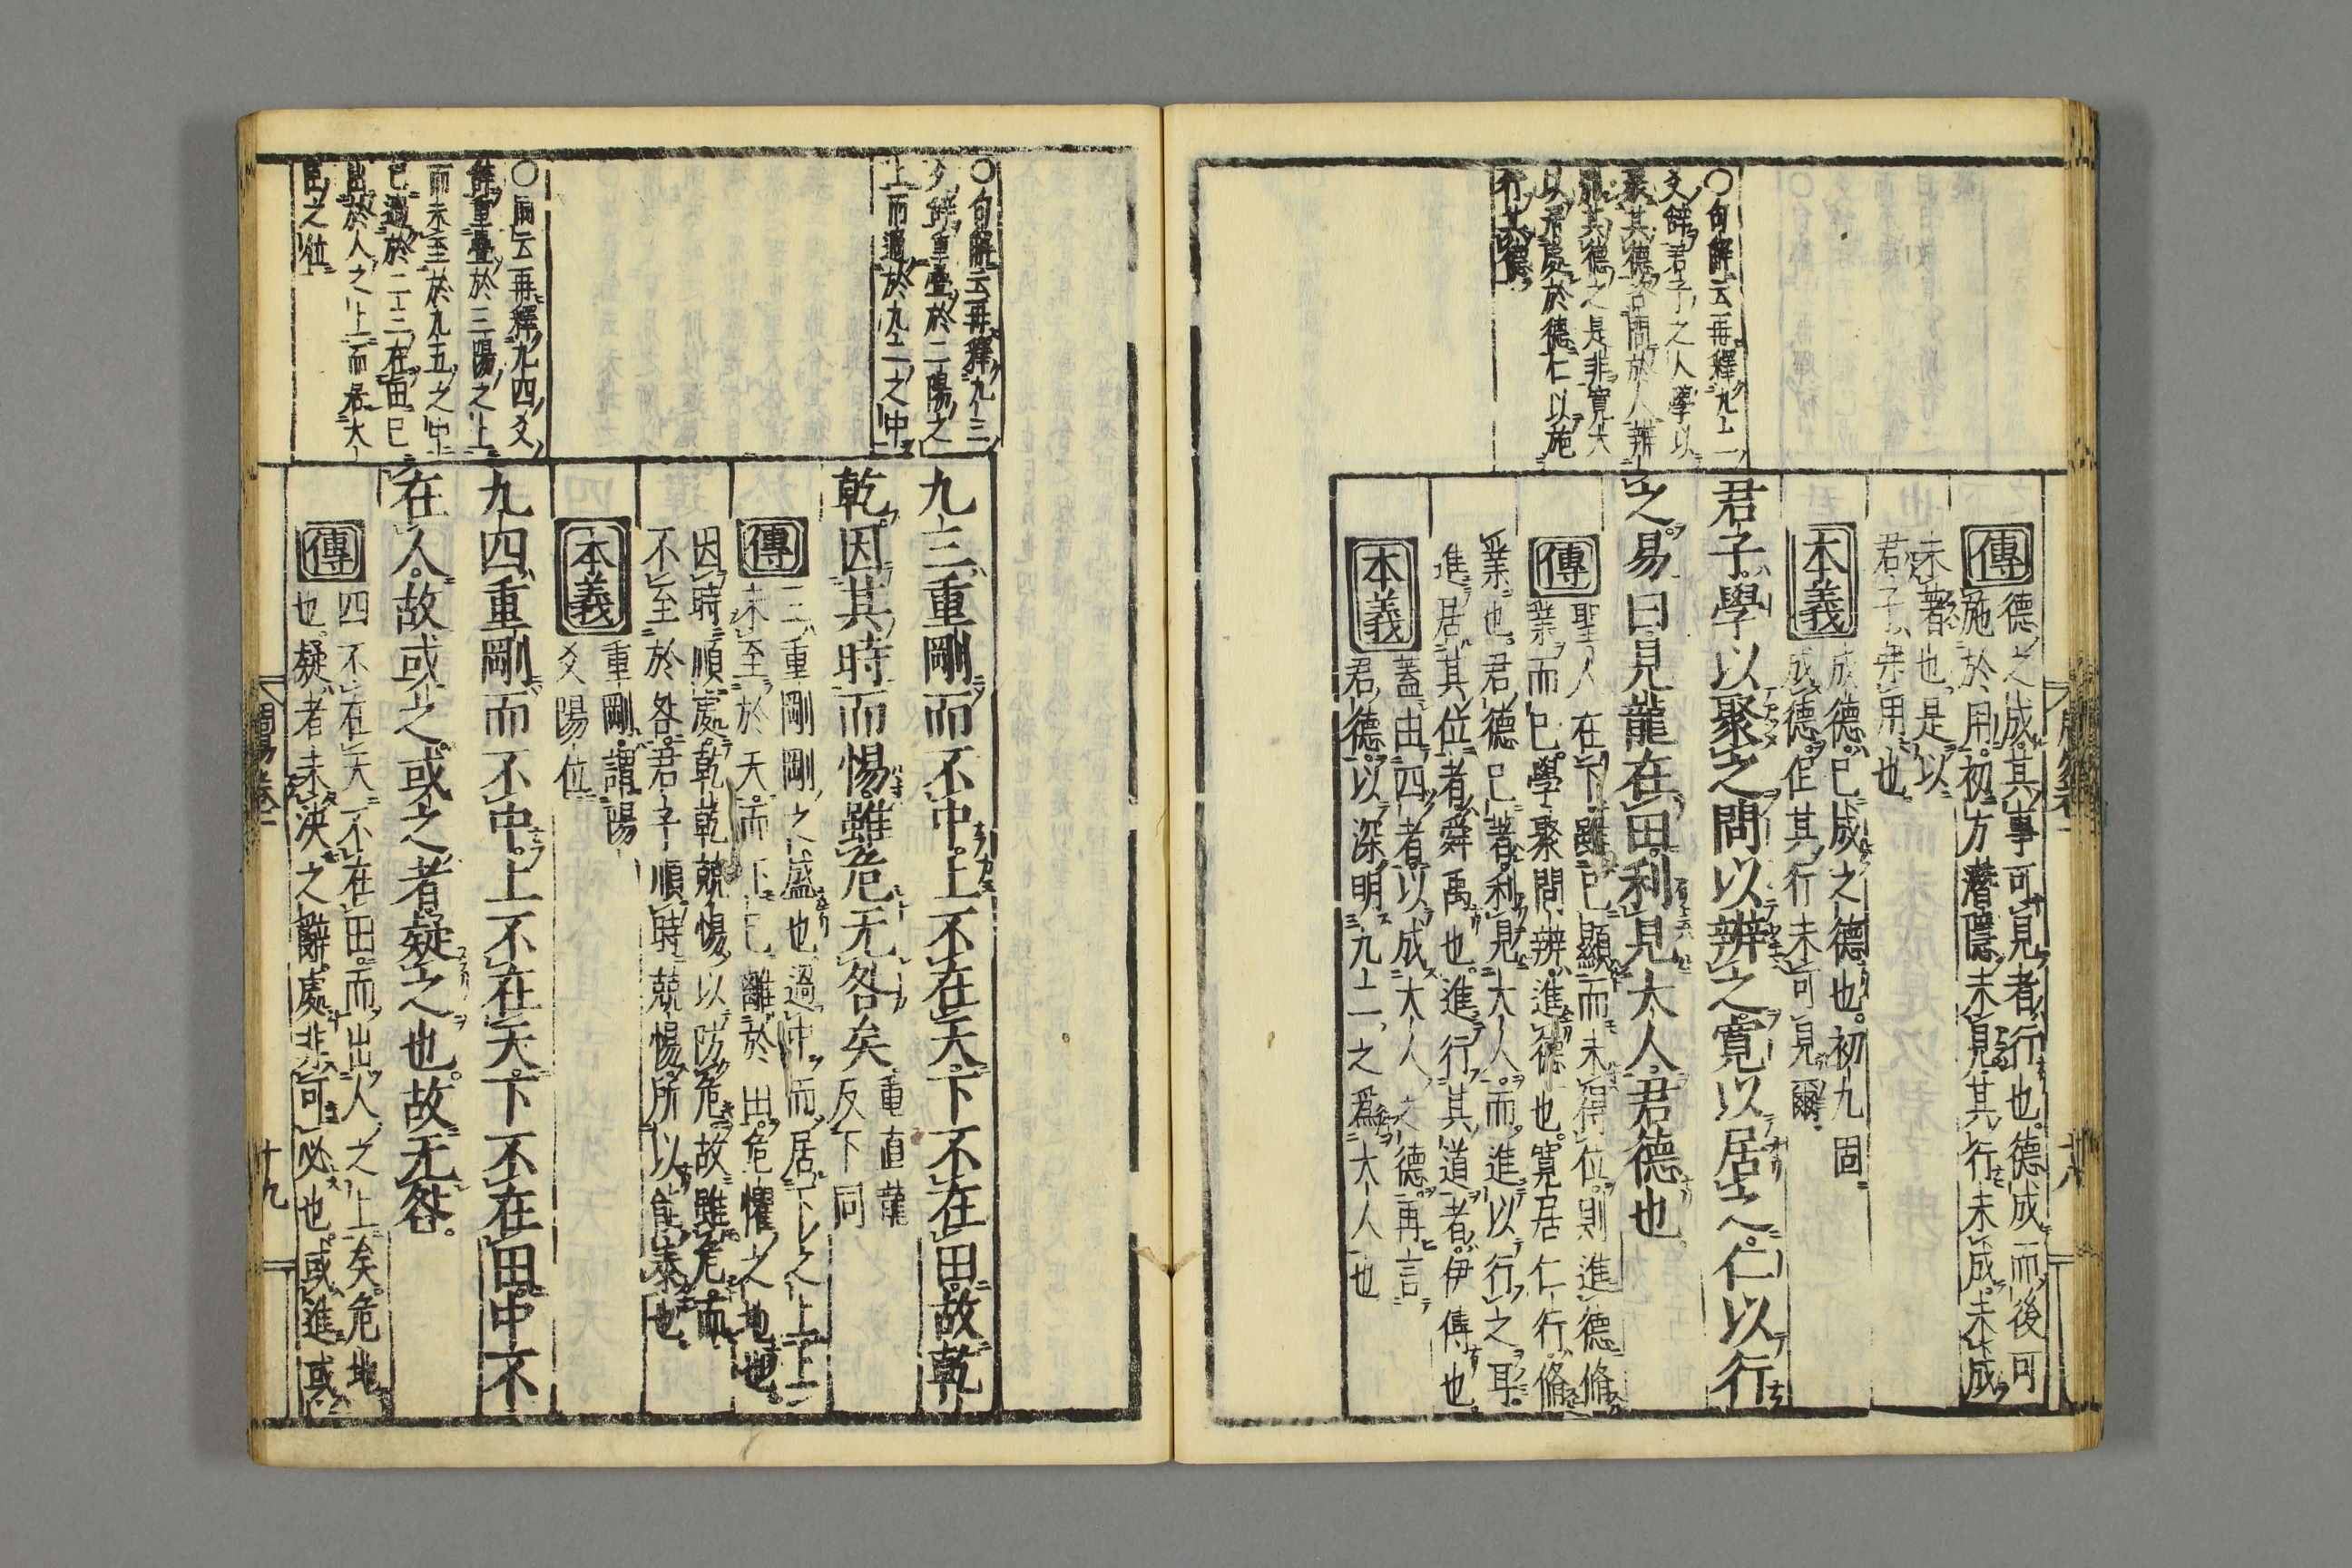 周易卷一
十八
傳
德之成其事可見者行也德成而後可
施於用初方潛隱未見其行未成未成
未著也是以
君子弗用也
本義
成德已成之德也初九固
成德但其行未可見爾
君子學以聚之問以辨之寬以居之仁以行
之易曰見龍在田利見大人君德也
傳
聖人在下雖已顯而未得位則進德脩
業而已學聚問辨進德也寬居仁行脩
業也君德已著利見大人而進以行之耳
進居其位者舜禹也進行其道者伊傅也
本義
蓋由四者以成大人之德再言
君德以深明九二之爲大人也
○句解云再釋九二
爻辭君子之人學以
聚其德咨問於人辨
別其德之是非寬大
以居處於德仁以施
行其德
九三重剛而不中上不在天下不在田故乾
乾因其時而惕雖危无咎矣
重直龍
反下同
傳
三重剛剛之盛也過中而居下之上上
未至於天而下已離於田危懼之地也
因時順處乾乾兢惕以防危故雖危而
不至於咎君子順時兢惕所以能泰也
本義
重剛謂陽
爻陽位
九四重剛而不中上不在天下不在田中不
在人故或之或之者疑之也故无咎
傳
四不在天不在田而出人之上矣危地
也疑者未決之辭處非可必也或進或
○句解云再釋九三
爻辭重疊於二陽之
上而過於九二之中
○圖云再釋九四爻
辭重疊於三陽之上
而未至於九五之中
已過於二三在田已
出於人之上而居大
臣之位
周易卷一
十九